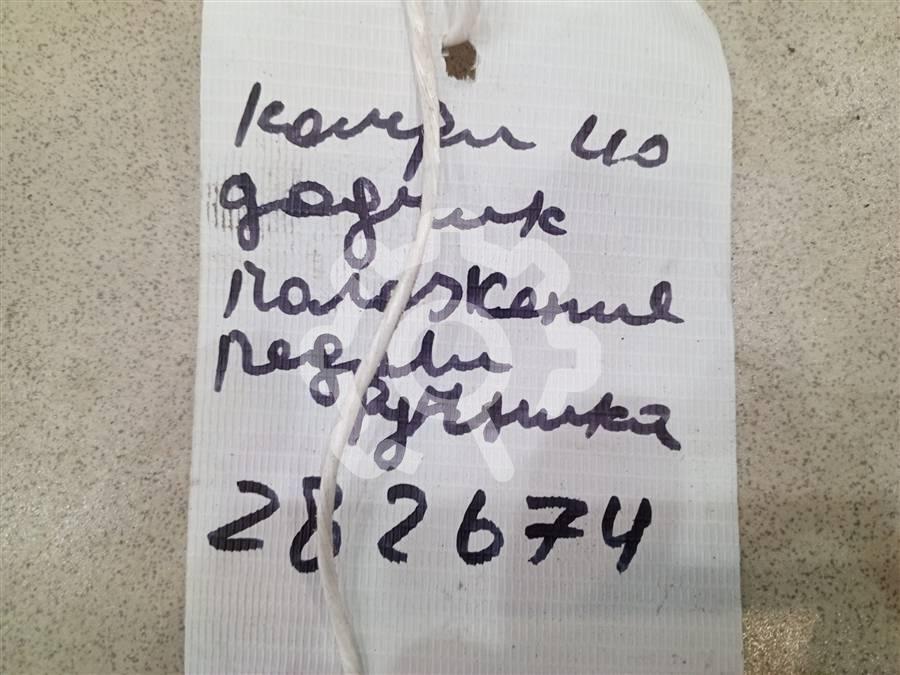 Камри 40
дадчик
положение
педали
ручника
282674